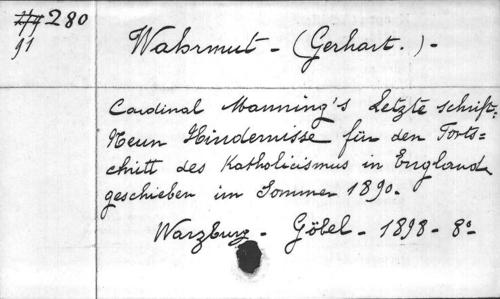 280
91
Wahrmut - (Gerhart.) -
Cardinal Manning's Letzte Schrift:
Neun Hindernisse für den Forts=
chritt des Katholicismus in England
geschieben im Sommer 1890-
Warzburg - Göbel - 1898 - 8º